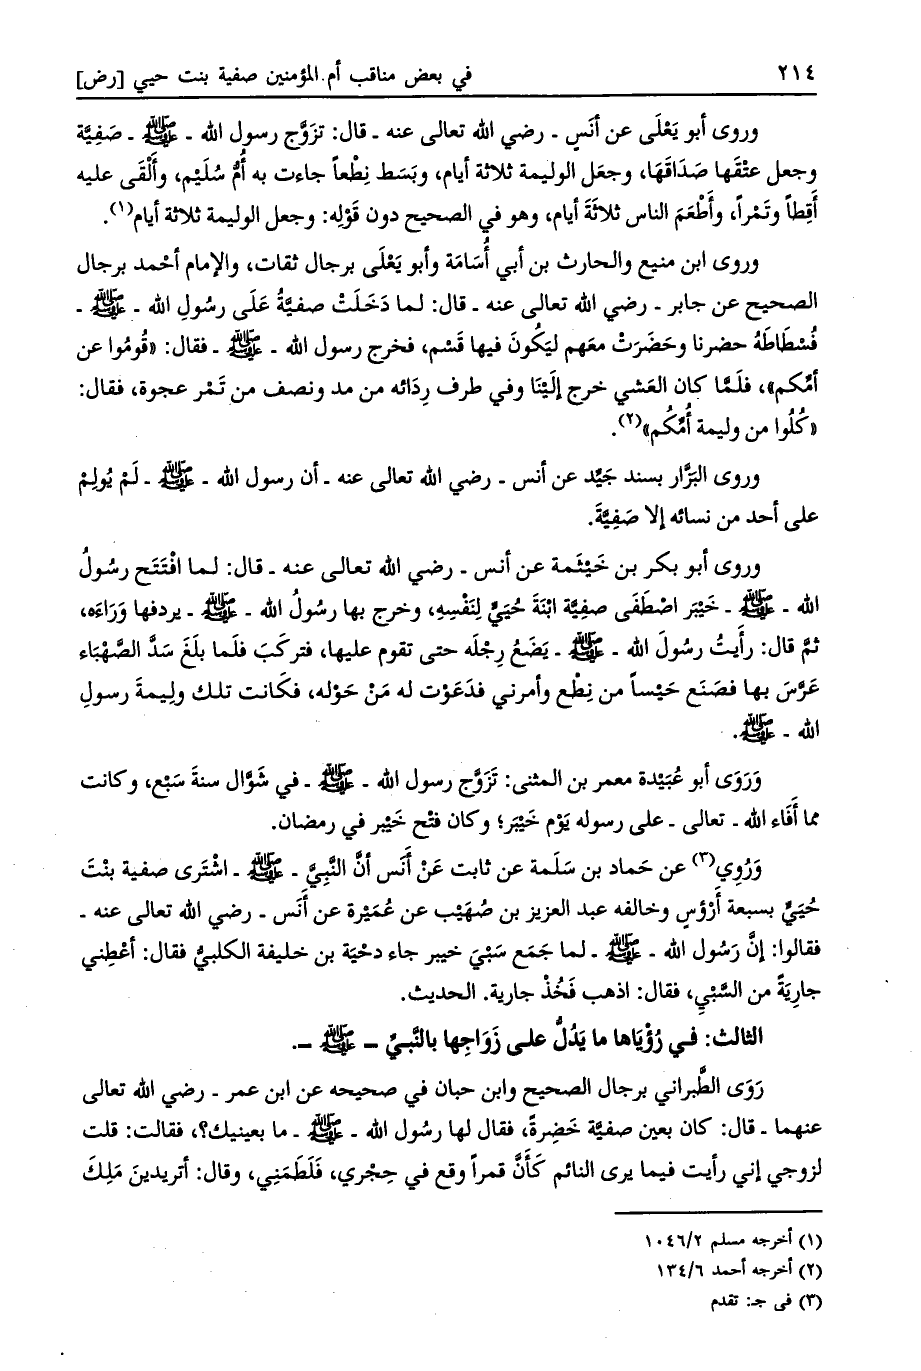 ٢١٤ في بعض مناقب أم المؤمنين صفية بنت حيي [رض]
وروى أبو يَعْلَى عن أنَسٍ ـ رضي الله تعالى عنه ـ قال: تزَوَّج رسول الله ـ ﷺ ـ صَفِيَّة
وجعل عتْقَها صَدَاقَهَا، وجعَل الوليمة ثلاثة أيام، وبَسَط نِطْعاً جاءت به أُمُّ سُلَيْم، وأَلْقَى عليه
أقِطاً وتَمْراً، وأَطْعَمَ الناس ثلاثَةَ أيام، وهو في الصحيح دون قَوْلِه: وجعل الوليمة ثلاثة أيام(١).
وروى ابن منيع والحارث بن أبي أُسَامَة وأبو يَعْلَى برجال ثقات، والإمام أحْمد برجال
الصحيح عن جابر ـ رضي الله تعالى عنه ـ قال: لما دَخَلَتْ صفيَّةُ عَلَى رسُولِ الله ـ ﷺ ـ
فُسْطَاطَهُ حضرنا وحَضَرَتْ معَهم ليَكُونَ فيها قَسْم، فخرج رسول الله ـ ﷺ ـ فقال: «قُومُوا عن
أمِّكم»، فلَمَّا كان العَشي خرج إلَيْنَا وفي طرف رِدَائه من مد ونصف من تَمْر عجوة، فقال:
«كُلُوا من وليمة أُمِّكُم»(٢).
وروى البَزَّار بسند جَيِّد عن أنس ـ رضي الله تعالى عنه ـ أن رسول الله ـ ﷺ ـ لَمْ يُولِمْ
على أحد من نسائه إلا صَفِيَّةَ.
وروى أبو بكر بن خَيْثَمة عن أنس ـ رضي الله تعالى عنه ـ قال: لما افْتَتَح رسُولُ
الله ـ ﷺ ـ خَيْبَر اصْطَفَى صفيَّة ابْنَةَ حُيَيٍّ لِنَفْسِهِ، وخرج بها رسُولُ الله ـ ﷺ ـ يردفها وَرَاءَه،
ثمَّ قال: رأَيتُ رسُولَ الله ـ ﷺ ـ يَضَعُ رِجْلَه حتى تقوم عليها، فتركَبَ فلَما بلَغَ سَدَّ الصَّهْبَاء
عَرَّسَ بها فصَنَع حَيْساً من نِطْع وأمرني فدَعَوْت له مَنْ حَوْله، فكَانت تلك ولِيمةَ رسولِ
الله ـ ﷺ.
وَرَوَى أبو عُبَيْدة معمر بن المثنى: تَزَوَّج رسول الله ـ ﷺ ـ في شَوَّال سنةَ سَبْع، وكانت
مما أَفَاء الله ـ تعالى ـ على رسوله يَوْم خَيْبَر؛ وكان فتْح خَيْبر في رمضان.
وَرُوِي(٣) عن حَماد بن سَلَمة عن ثابت عَنْ أَنَس أنَّ النَّبِيَّ ـ ﷺ ـ اشْتَرى صفية بنْتَ
حُيَيٍّ بسبعة أَرْؤُسٍ وخالفه عبد العزيز بن صُهَيْب عن عُمَيْرة عن أَنَس ـ رضي الله تعالى عنه ـ
فقالوا: إنَّ رَسُول الله ـ ﷺ ـ لما جَمَع سَبْيَ خيبر جاء دحْيَة بن خليفة الكلبيُّ فقال: أعْطِني
جارِيَةً من السَّبْيِ، فقال: اذهب فَخُذْ جارية. الحديث.
الثالث: في رُؤْيَاها ما يَدُلُّ على زَوَاجِها بالنَّبيِّ ـ ﷺ ـ.
رَوَى الطَّبراني برجال الصحيح وابن حبان في صحيحه عن ابن عمر ـ رضي الله تعالى
عنهما ـ قال: كان بعين صفيَّة خَضِرةً، فقال لها رسُول الله ـ ﷺ ـ ما بعينيك؟، فقالت: قلت
لزوجي إني رأيت فيما يرى النائم كَأَنَّ قمراً وقع في حِجْري، فَلَطَمَنِي، وقال: أتريدينَ مَلِكَ
(١) أخرجه مسلم ١٠٤٦/٢
(٢) أخرجه أحمد ١٣٤/٦
(٣) في جـ: تقدم